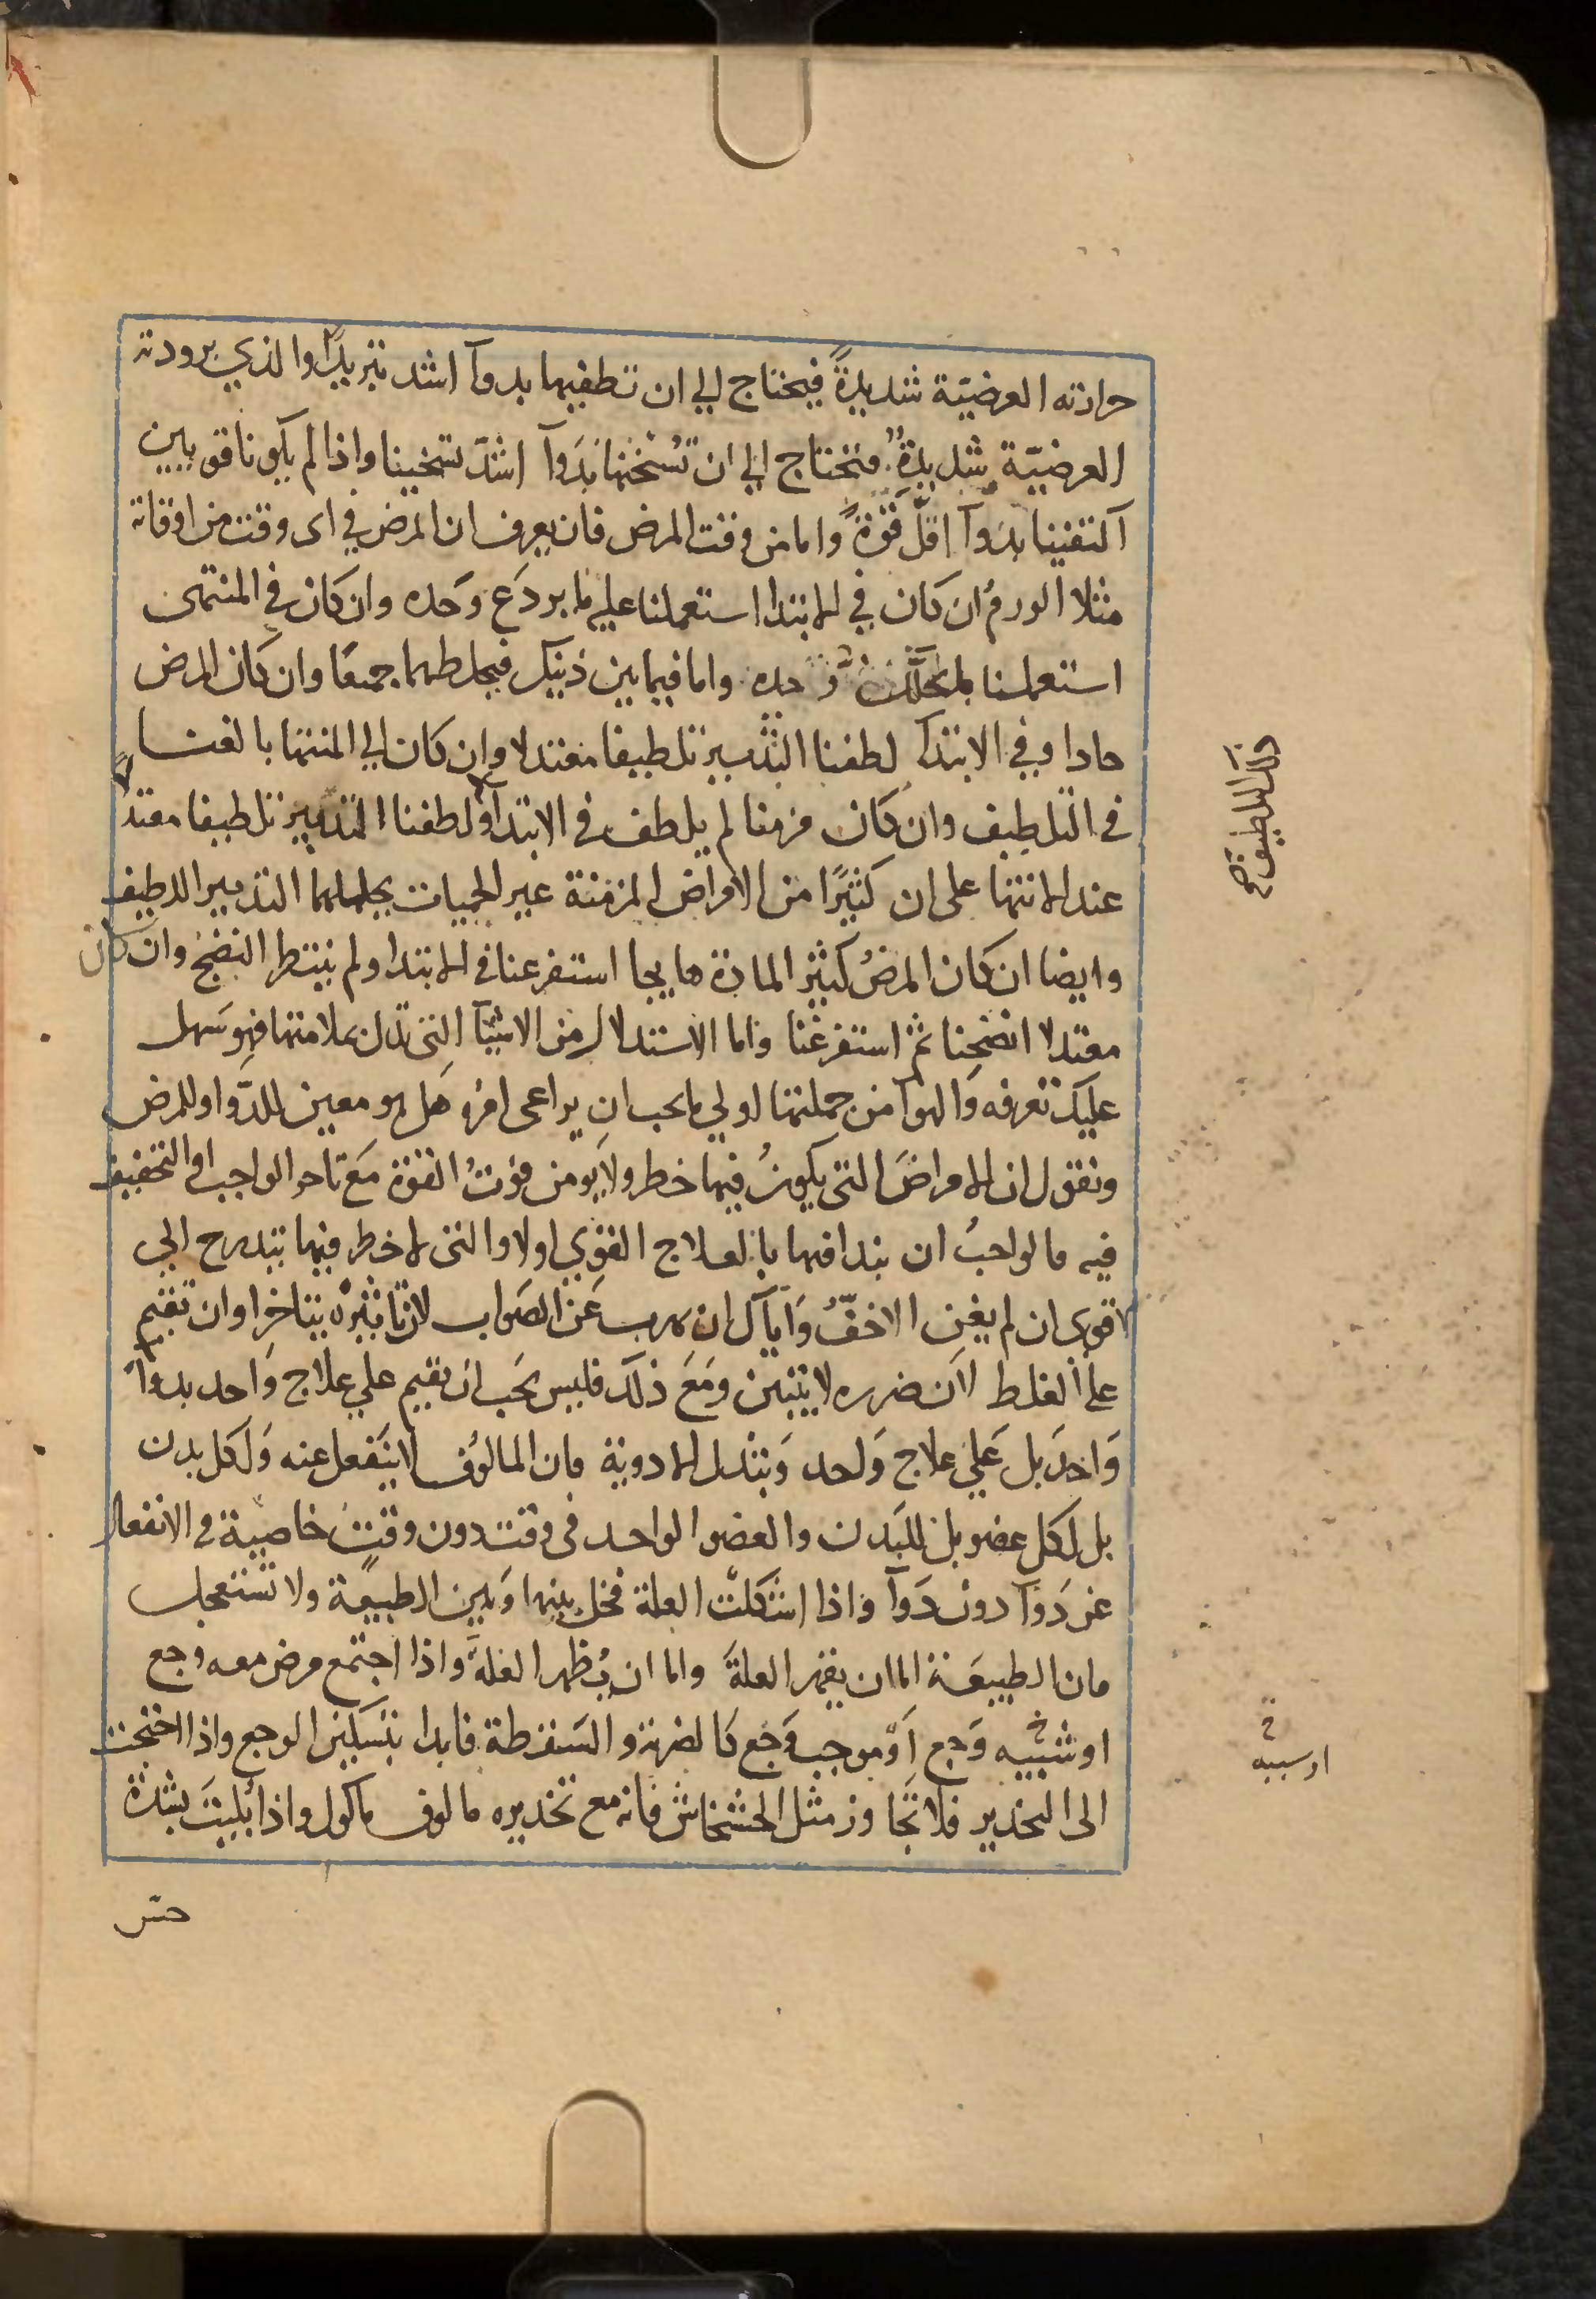 حرارته العرضيّة شديدةً فيحتاج الي ان تطفيها بدوآ اشد تبريدًا والذي برودته
العرضيّة شديدة فتحتاج الي ان تسخنها بدَوآ اشدّ تسخينا واذا لم يكونا قويين
آكتفينا بدَوآ اقلّ قوّة واما من وقت المرض فان يعرف ان المرض في اى وقت من اوقاته
مثلا الورمُ ان كان في الابتدا استعملنا عليه ما يردَع وَحده وان كان في المنتهى
استعملنا وحده واما فيما بين ذينك فيخلطهما جميعًا وان كان المرض
حادا وفي الابتدآ لطفنا التدبير تلطيفا معتدلا وان كان الي المنتها بالغنا
في التلطيف وان كان مزمنا لم يلطف في الابتدآ ولطفنا التدبير تلطيفا معتدلاً
عند الانتها على ان كثيرًا من الامراض المزمنة غير الحميات يحللها التدبير اللطيف
وايضا ان كان المرضُ كثير المادة هايجا استفرغنا في الابتدا ولم ينتظر النضجُ وان كان
معتدلا انضجنا ثم استفرغنا واما الاستدلال من الاشيآ التى تدل بملامتها فهو سَهل
عليك تعرفه وَالهوآ من جملتها اولي ما يجب ان يراعى امرهُ هَل هو معين للدّوا او للمرض
ونقول ان الامراضَ التى يكونُ فيها خطر ولا يومن فوتُ القوة مَع تاخر الواجب او التخفيف
فيه فالواجبُ ان يبدا فيها بالعلاج القوي اولا والتى لا خطر فيها يتدرج الي
الاقوى ان لم يغنِ الاخفّ وَاياك ان تهرب عَن الصَواب لان تاثيرهُ يتاخر او ان تقيم
على الغلط لان ضرره لا يتبين وَمَعَ ذلك فليس يجَب ان تقيم علي علاج وَاحد بدوآ
وَاحدَ بل عَلي علاج وَاحد وَتبدل الادوية فان المالوُف لا ينَفعل عنه وَلكل بدن
بل لكل عضو بل للبَدن والعضو الواحد في وقت دون وقتٍ خاصية في الانفعال
عن دَوآ دون دَوآ واذا اشكلتّ العلة فخل بينها وَبين الطبيعة ولا تستعجل
فان الطبيعَة اما ان يقهر العلةَ واما ان يُظهر العلةَ واذا اجتمع مرض معه وجع
او شبيه وَجع اَوْ موجب وَجع كالضربة والسَقطة فابدا بتَسكين الوجع واذا احتجت
الى التخدير فلا تجَاوز مثل الخشخاش فانه مع تخديره مالوف ماكول واذا بُليتَ بشدّة
ذلك التلطيف صح
خ
او سببه
حسّ